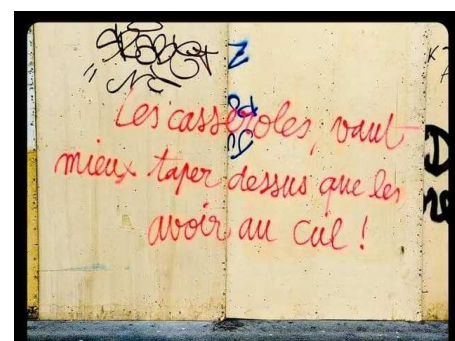 Les casseroles, vaut
mieux taper dessus que les
avoir au cul !